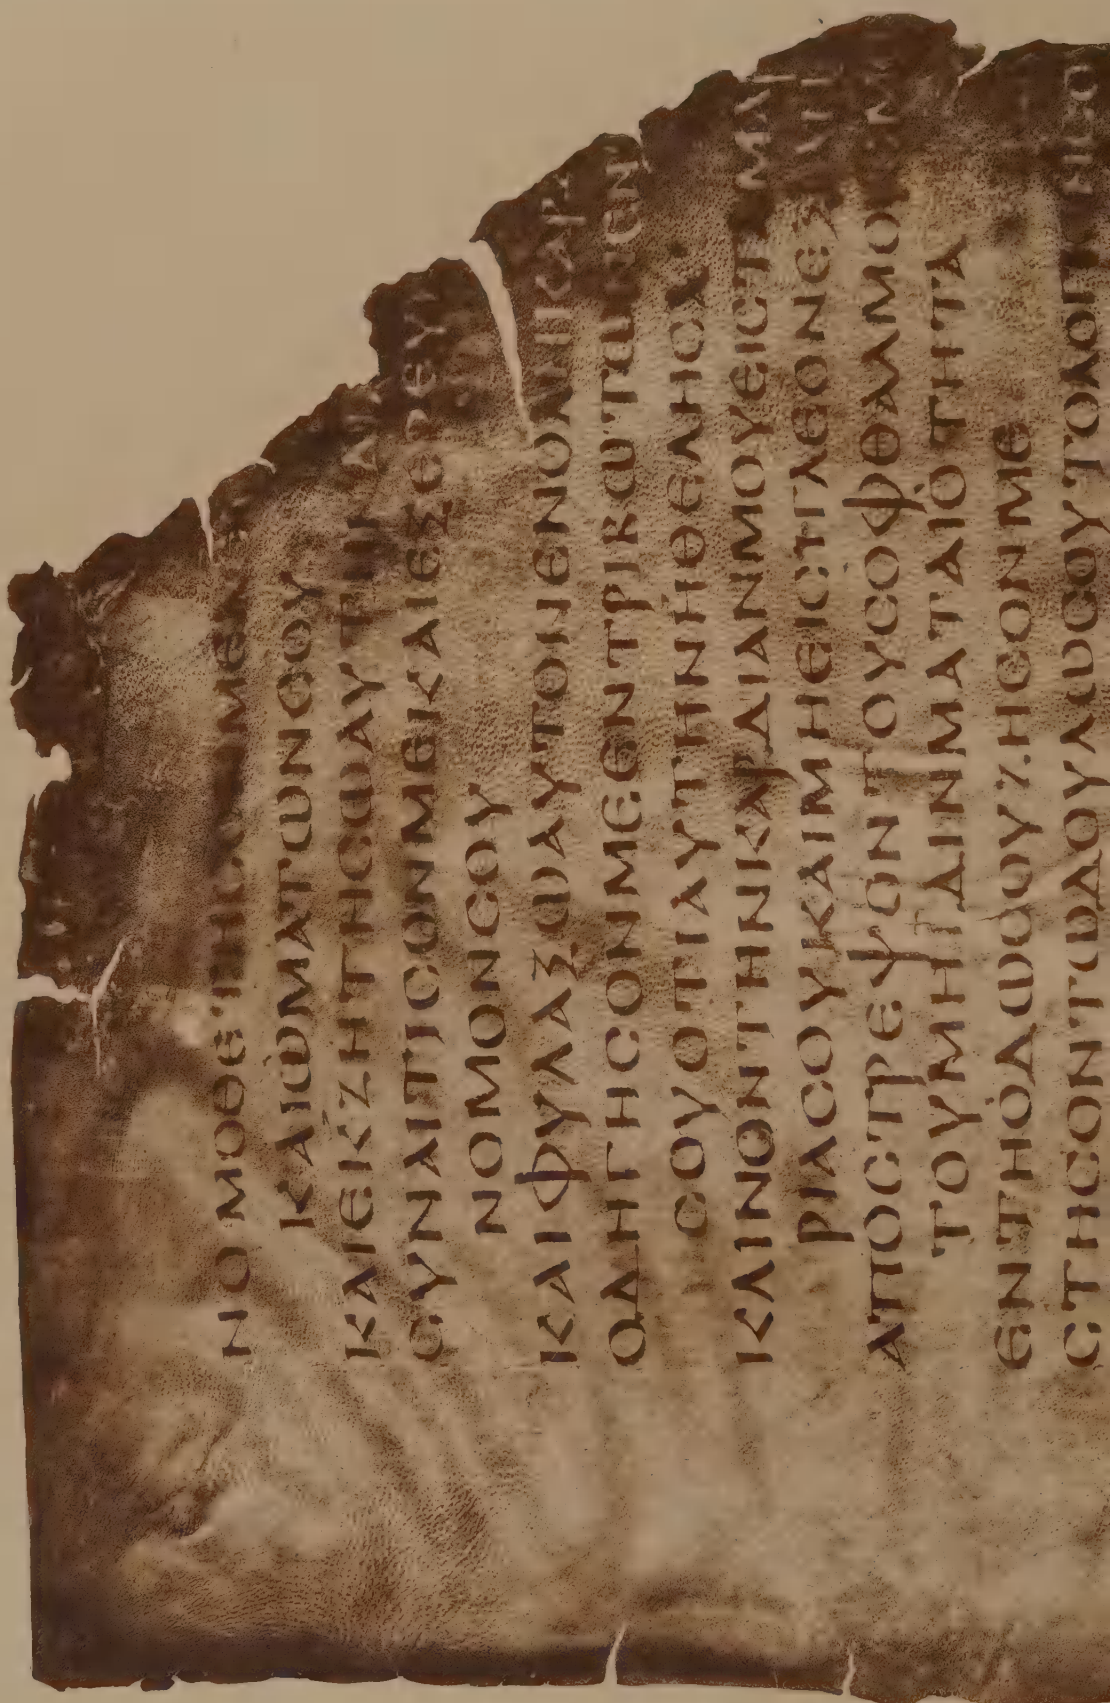 ΝΟΜΟΘΕΤΗCΟΜΕΚ
ΚΑΙΩΜΑΤΩΝCΟΥ
ΚΑΙΕΚΖΗΤΗCΩΑΥΤΗ
CΥΝΑΙΤΙCΟΝΜΕΚΑΙΕΞΕΡΕΥ
ΝΟΜΟΝCΟΥ
ΚΑΙΦΥΛΑΞΩΑΥΤΟΝΕΝΟΛΗΚΑΡ
ΟΔΗΓΗCΟΝΜΕΕΝΤΡΙΒΩΤΩΝΕΝ
CΟΥΟΤΙΑΥΤΗΝΗΘΕΛΗCΑ
ΚΛΙΝΟΝΤΗΝΚΑΡΔΙΑΝΜΟΥΕΙCΤΑΜΑΡ
ΡΙΑCΟΥΚΑΙΜΗΕΙCΠΛΕΟΝΕΞ
ΑΠΟCΤΡΕΨΟΝΤΟΥCΟΦΘΑΛΜΟΥCΜΟ
ΤΟΥΜΗΓΔΙΝΜΑΤΑΙΟΤΗΤΑ
ΕΝΤΗΟΔΩCΟΥΖΗCΟΝΜΕ
CΤΗCΟΝΤΩΔΟΥΛΩCΟΥΤΟΛΟΓΙΟΝCΟ